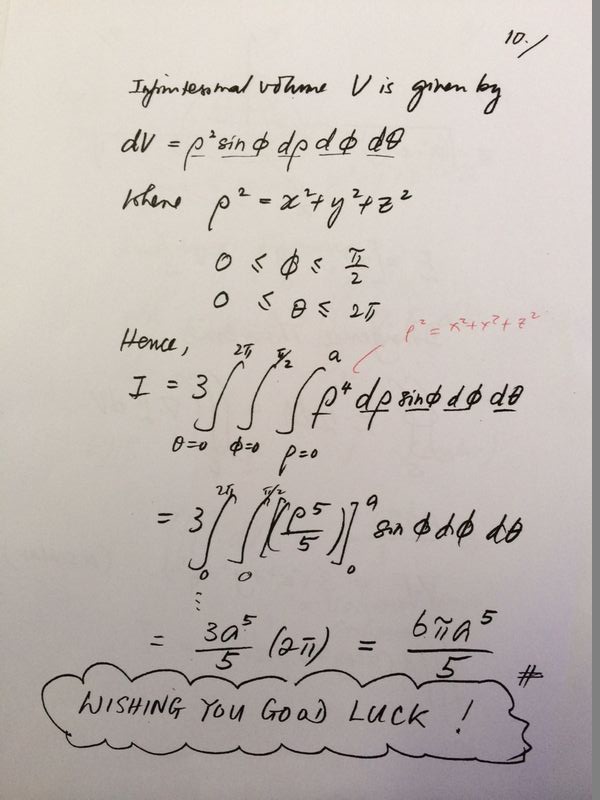 10./
Infinitesimal volume V is given by
dV = ρ² sin ϕ dρ d ϕ dθ
where ρ² = x² + y² + z²
0 ≤ ϕ ≤ π/2
0 ≤ θ ≤ 2π
ρ² = x² + y² + z²
Hence,
I = 3 ∫_{θ=0}^{2π} ∫_{ϕ=0}^{π/2} ∫_{ρ=0}^{a} ρ⁴ dρ sinϕ dϕ dθ
= 3 ∫_0^{2π} ∫_0^{π/2} [(ρ5/5)]_0^a sin ϕ dϕ dθ
⋮
= 3a⁵/5 (2π) = 6πa⁵/5 #
WISHING YOU GOOD LUCK !